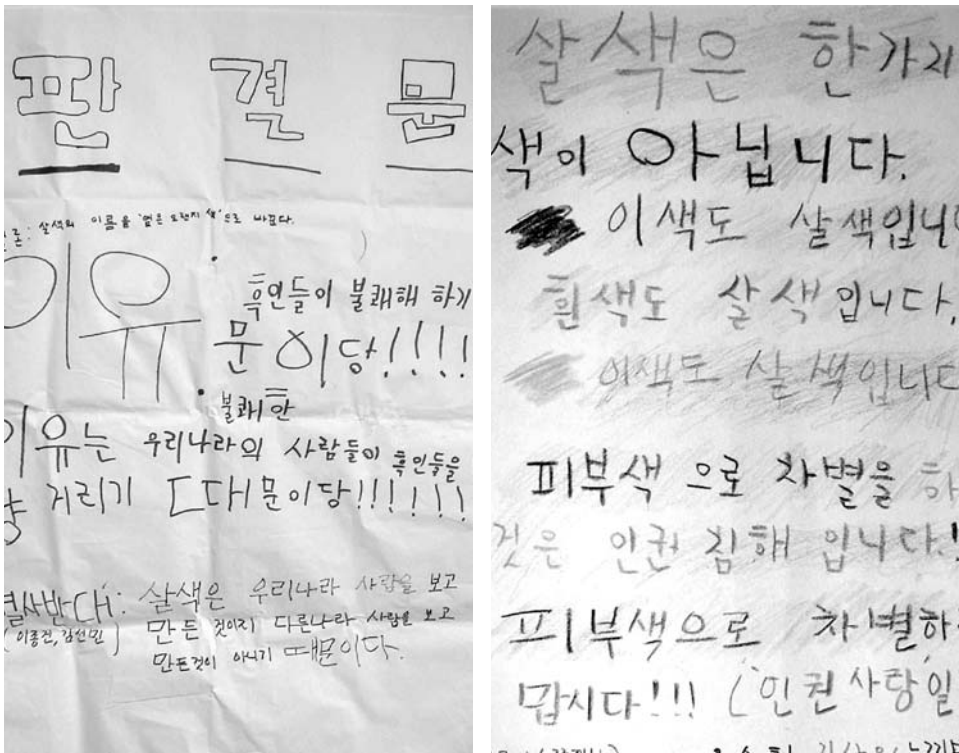 판 결 문
론: 살색의 이름을 '옅은 오렌지 색'으로 바꾼다.
이유
흑인들이 불쾌해 하기
문이당!!!!
불쾌한
이유는 우리나라의 사람들이 흑인들을
거리기 때문이당!!!!!!
결사반대: 살색은 우리나라 사람을 보고
만든 것이지 다른나라 사람을 보고
만든것이 아니기 때문이다.
살색은 한가지
색이 아닙니다.
이색도 살색입니다
흰색도 살색입니다.
이색도 살색입니다
피부색 으로 차별을 하
것은 인권 침해 입니다.!
피부색으로 차별하
맙시다!!! ('인권사탕'일